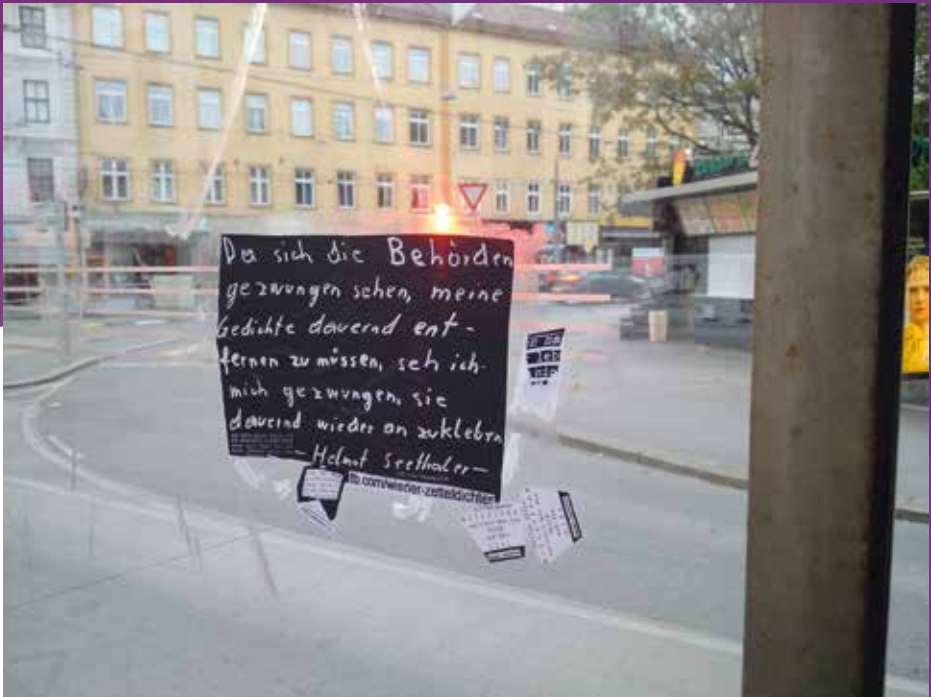 Da sich die Behörden
gezwungen sehen, meine
Gedichte dauernd ent-
fernen zu müssen, seh ich
mich gezwungen, sie
dauernd wieder an zukleben
— Helmut Seethaler —
fb.com/wiener-zetteldichter